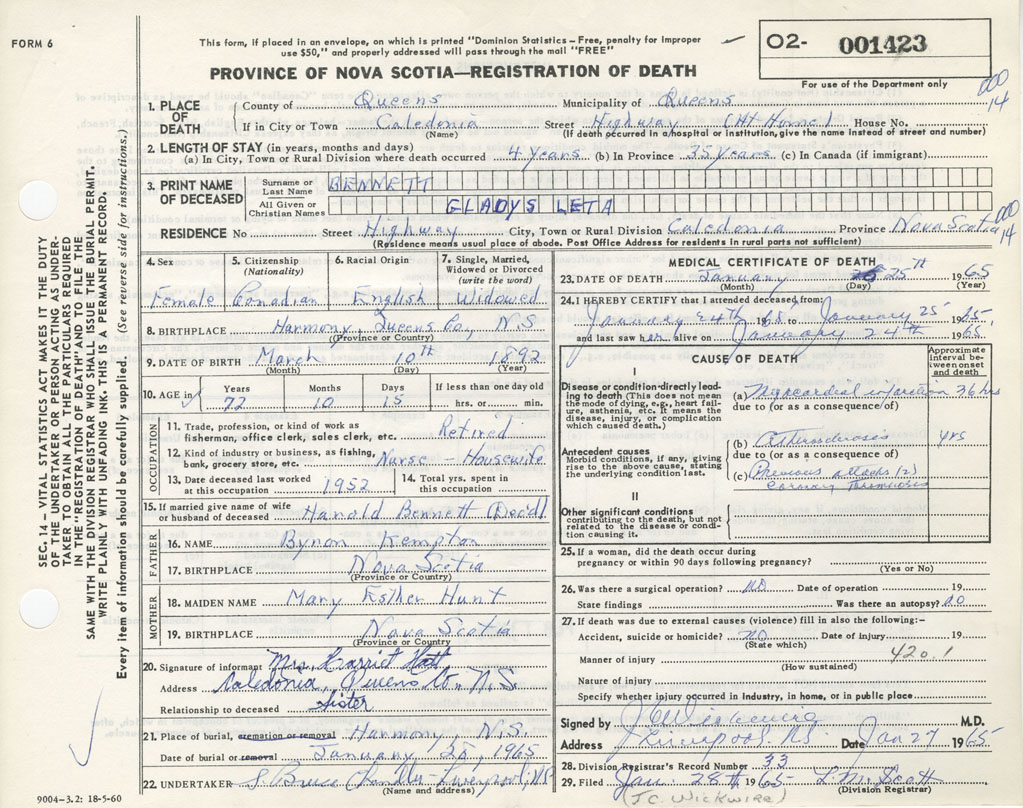 FORM 6
This form, if placed in an envelope, on which is printed "Dominion Statistics – Free, penalty for improper
use $50," and properly addressed will pass through the mail "FREE"
O2- 001423
For use of the Department only
PROVINCE OF NOVA SCOTIA—REGISTRATION OF DEATH
000
14
1. PLACE OF DEATH
County of Queens Municipality of Queens
If in City or Town Caledonia Street Highway (At Home) House No.
(Name) (If death occurred in a hospital or institution, give the name instead of street and number)
2. LENGTH OF STAY (in years, months and days)
(a) In City, Town or Rural Division where death occurred 4 years (b) In Province 35 years (c) In Canada (if immigrant)
3. PRINT NAME OF DECEASED
Surname or Last Name BENNETT
All Given or Christian Names GLADYS LETA
RESIDENCE No Street Highway City, Town or Rural Division Caledonia Province Nova Scotia
000
14
(Residence means usual place of abode. Post Office Address for residents in rural parts not sufficient)
4. Sex
Female
5. Citizenship
(Nationality)
Canadian
6. Racial Origin
English
7. Single, Married,
Widowed or Divorced
(write the word)
Widowed
8. BIRTHPLACE Harmony, Queens Co., N.S.
(Province or Country)
9. DATE OF BIRTH March 10th 1892
(Month) (Day) (Year)
10. AGE in
Years 72
Months 10
Days 15
If less than one day old
hrs. or min.
OCCUPATION
11. Trade, profession, or kind of work as
fisherman, office clerk, sales clerk, etc. Retired
12. Kind of industry or business, as fishing,
bank, grocery store, etc. Nurse – Housewife
13. Date deceased last worked
at this occupation 1952
14. Total yrs. spent in
this occupation
15. If married give name of wife
or husband of deceased Harold Bennett (Dec'd)
FATHER
16. NAME Byron Kempton
17. BIRTHPLACE Nova Scotia
(Province or Country)
MOTHER
18. MAIDEN NAME Mary Esther Hunt
19. BIRTHPLACE Nova Scotia
(Province or Country
20. Signature of informant Mrs. Harriet
Address Caledonia, Queens Co., N.S.
Relationship to deceased Sister
21. Place of burial, cremation or removal Harmony, N.S.
Date of burial or removal January 28, 1965
22. UNDERTAKER S. Bruce Chandler – Liverpool, NS
(Name and address)
9004-3.2: 18-5-60
MEDICAL CERTIFICATE OF DEATH
23. DATE OF DEATH January 25th 1965
(Month) (Day) (Year)
24. I HEREBY CERTIFY that I attended deceased from:
January 24th 1965 to January 25 1965,
and last saw her alive on January 24th 1965
CAUSE OF DEATH
Approximate
interval be-
tween onset
and death
I
Disease or condition directly lead-
ing to death (This does not mean
the mode of dying, e.g., heart fail-
ure, asthenia, etc. It means the
disease, injury, or complication
which caused death.)
(a) Myocardial infarction 36 hrs
due to (or as a consequence of)
Antecedent causes
Morbid conditions, if any, giving
rise to the above cause, stating
the underlying condition last.
(b) Arteriosclerosis yrs
due to (or as a consequence of)
(c) Previous attacks (2)
Coronary Thrombosis
II
Other significant conditions
contributing to the death, but not
related to the disease or condi-
tion causing it.
25. If a woman, did the death occur during
pregnancy or within 90 days following pregnancy?
(Yes or No)
26. Was there a surgical operation? No Date of operation 19
State findings Was there an autopsy? No
27. If death was due to external causes (violence) fill in also the following:–
Accident, suicide or homicide? No Date of injury 19
(State which)
420.1
Manner of injury
(How sustained)
Nature of injury
Specify whether injury occurred in industry, in home, or in public place
Signed by J C Wickwire M.D.
Address Liverpool NS Date Jan 27 1965
28. Division Registrar's Record Number 33
29. Filed Jan. 28th 1965 L. M. Scott
(Division Registrar)
(J.C. Wickwire)
SEC. 14 – VITAL STATISTICS ACT MAKES IT THE DUTY
OF THE UNDERTAKER OR PERSON ACTING AS UNDER-
TAKER TO OBTAIN ALL THE PARTICULARS REQUIRED
IN THE "REGISTRATION OF DEATH" AND TO FILE THE
SAME WITH THE DIVISION REGISTRAR WHO SHALL ISSUE THE BURIAL PERMIT.
WRITE PLAINLY WITH UNFADING INK. THIS IS A PERMANENT RECORD.
Every item of information should be carefully supplied. (See reverse side for instructions.)